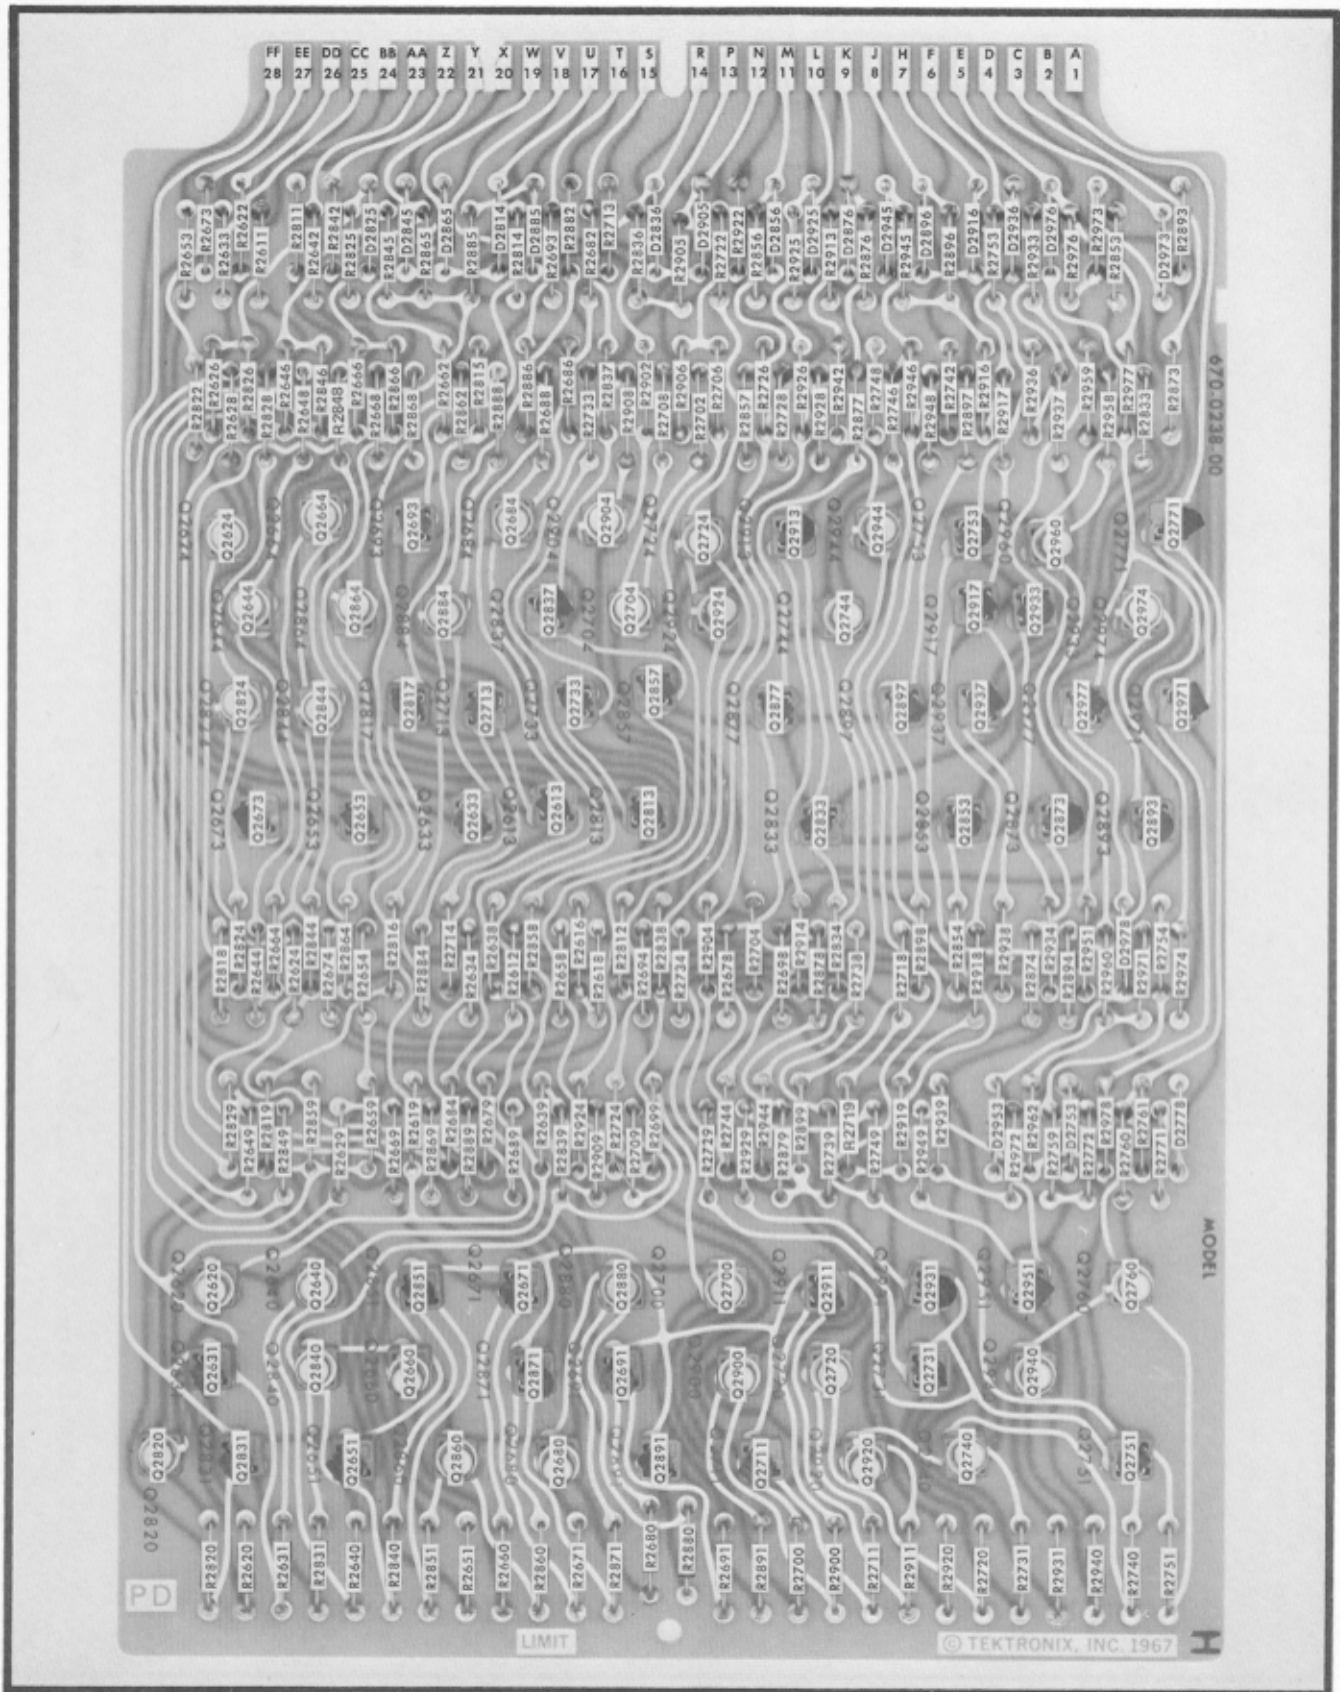 FF EE DD CC BB AA Z Y X W V U T S R P N M L K J H F E D C B A
28 27 26 25 24 23 22 21 20 19 18 17 16 15 14 13 12 11 10 9 8 7 6 5 4 3 2 1
R2653 R2673 R2633 R2622 R2611 R2811 R2642 R2842 R2825 D2825 R2845 D2845 R2865 D2865 R2885 D2814 R2814 D2885 R2693 R2882 R2682 R2713 R2836 D2836 R2905 D2905 R2722 R2922 R2856 D2856 R2925 D2925 R2913 D2876 R2876 D2945 R2945 D2896 R2896 D2916 R2753 D2936 R2933 D2976 R2976 R2973 R2853 D2973 R2893
R2822 R2626 R2628 R2826 R2828 R2646 R2648 R2846 R2848 R2666 R2668 R2866 R2868 R2662 R2862 R2815 R2888 R2886 R2688 R2686 R2733 R2837 R2908 R2902 R2708 R2906 R2702 R2706 R2857 R2726 R2728 R2926 R2928 R2942 R2877 R2748 R2746 R2946 R2948 R2742 R2897 R2916 R2917 R2936 R2937 R2959 R2958 R2977 R2833 R2873
670-0238-00
Q2624 Q2664 Q2693 Q2684 Q2904 Q2724 Q2913 Q2944 Q2753 Q2960 Q2771
Q2644 Q2864 Q2884 Q2837 Q2704 Q2924 Q2744 Q2917 Q2933 Q2974
Q2824 Q2844 Q2817 Q2713 Q2733 Q2857 Q2877 Q2897 Q2937 Q2977 Q2971
Q2673 Q2653 Q2633 Q2613 Q2813 Q2833 Q2853 Q2873 Q2893
R2818 R2824 R2644 R2664 R2624 R2844 R2674 R2864 R2654 R2816 R2884 R2714 R2634 R2638 R2612 R2858 R2658 R2616 R2618 R2812 R2694 R2838 R2734 R2904 R2678 R2704 R2698 R2914 R2878 R2834 R2738 R2718 R2898 R2854 R2918 R2938 R2874 R2934 R2894 R2951 R2960 D2978 R2971 R2754 R2974
R2829 R2649 R2819 R2849 R2859 R2629 R2659 R2669 R2619 R2869 R2684 R2889 R2679 R2689 R2639 R2839 R2924 R2909 R2724 R2709 R2699 R2729 R2744 R2929 R2944 R2879 R2899 R2739 R2719 R2749 R2919 R2949 R2939 D2953 R2972 R2962 R2759 D2753 R2772 R2978 R2760 R2761 R2771 D2778
MODEL
Q2620 Q2640 Q2851 Q2671 Q2880 Q2700 Q2911 Q2931 Q2951 Q2760
Q2631 Q2840 Q2660 Q2871 Q2691 Q2900 Q2720 Q2731 Q2940
Q2820 Q2831 Q2651 Q2860 Q2680 Q2891 Q2711 Q2920 Q2740 Q2751
Q2820
R2820 R2620 R2631 R2831 R2640 R2840 R2851 R2651 R2660 R2860 R2671 R2871 R2680 R2880 R2691 R2891 R2700 R2900 R2711 R2911 R2920 R2720 R2731 R2931 R2940 R2740 R2751
PD
LIMIT
© TEKTRONIX, INC. 1967
H